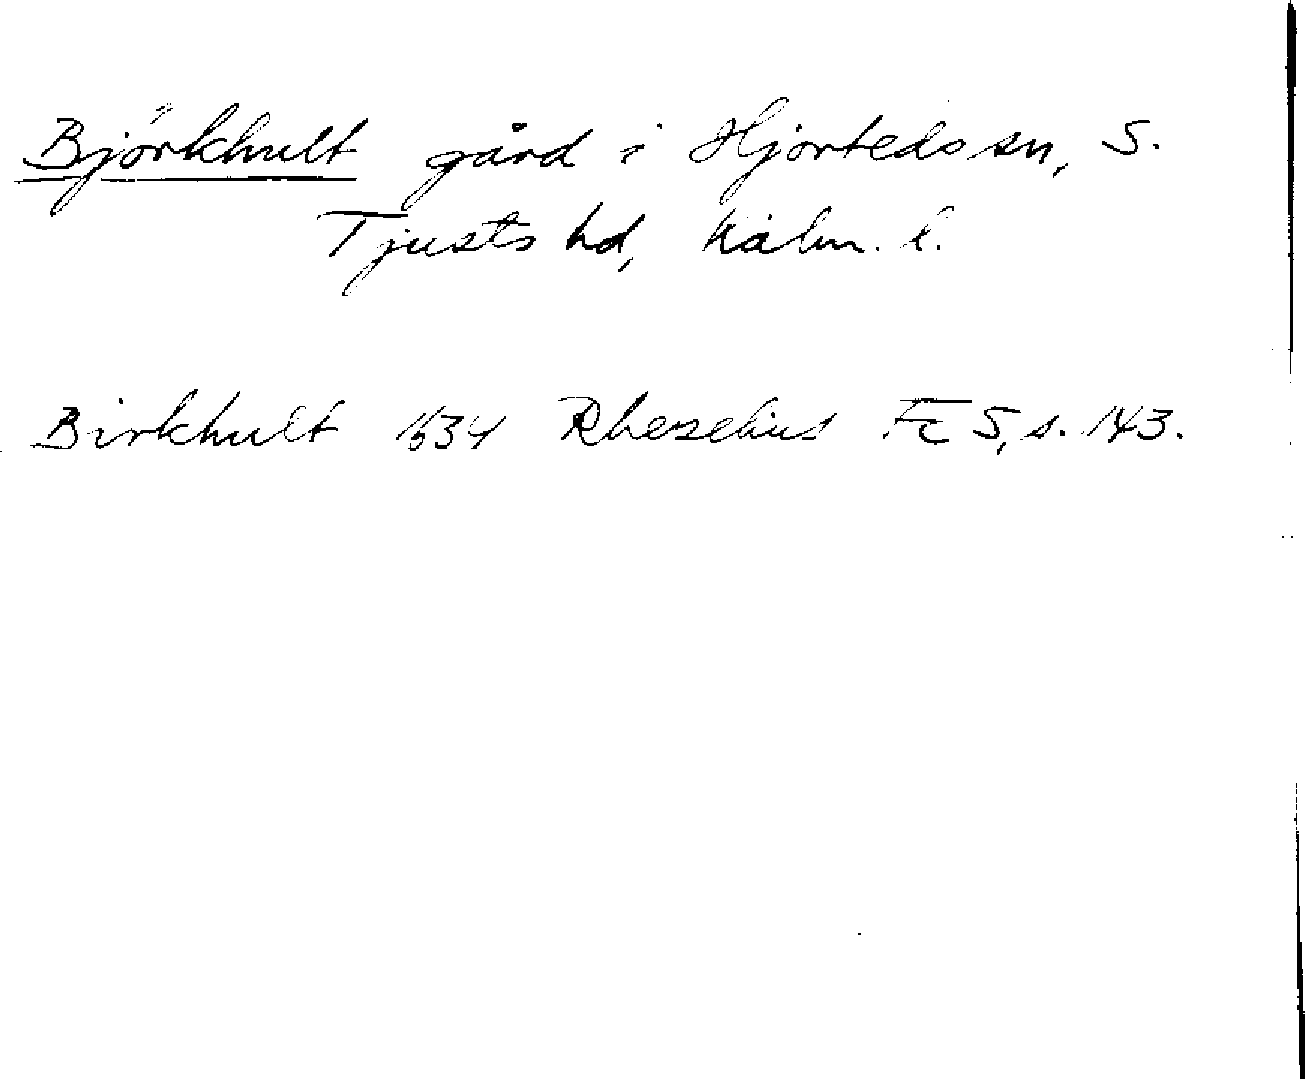 Björkhult gård i Hjorteds sn, S.
Tjusts hd, Kalm. l.
Birkhult 1634 Rhezelius Fc 5, s. 143.